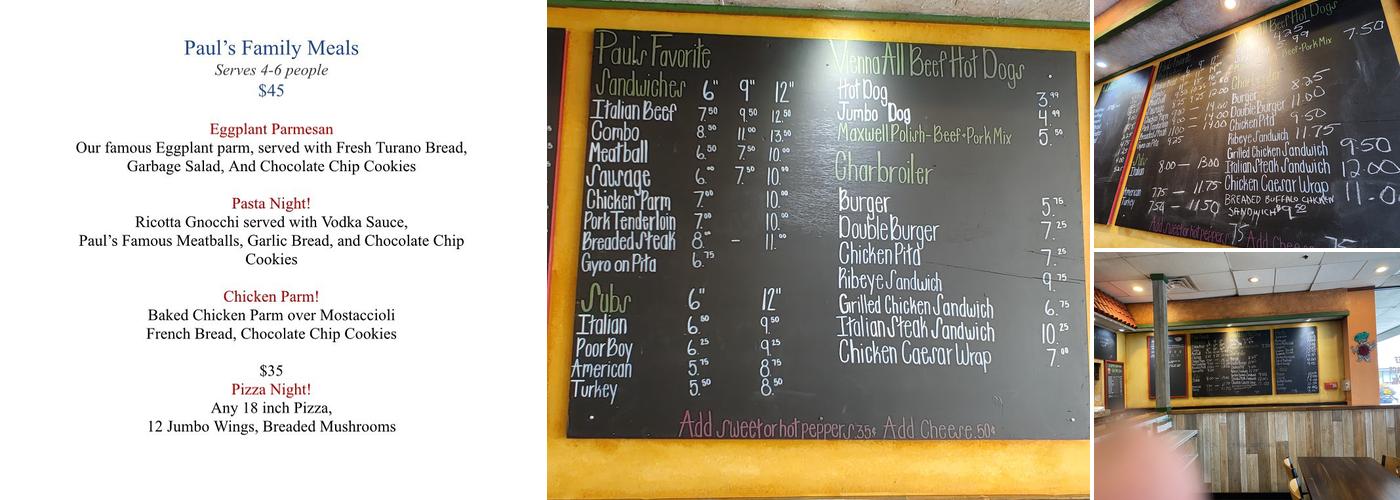 Paul's Family Meals
Serves 4-6 people
$45
Eggplant Parmesan
Our famous Eggplant parm, served with Fresh Turano Bread,
Garbage Salad, And Chocolate Chip Cookies
Pasta Night!
Ricotta Gnocchi served with Vodka Sauce,
Paul's Famous Meatballs, Garlic Bread, and Chocolate Chip
Cookies
Chicken Parm!
Baked Chicken Parm over Mostaccioli
French Bread, Chocolate Chip Cookies
$35
Pizza Night!
Any 18 inch Pizza,
12 Jumbo Wings, Breaded Mushrooms
Paul's Favorite
Sandwiches 6" 9" 12"
Italian Beef 7.50 9.50 12.50
Combo 8.50 11.00 13.50
Meatball 6.50 7.50 10.00
Sausage 6.00 7.50 10.00
Chicken Parm 7.00 10.00
Pork Tenderloin 7.00 10.00
Breaded Steak 8.00 – 11.00
Gyro on Pita 6.75
Subs 6" 12"
Italian 6.50 9.50
Poor Boy 6.25 9.25
American 5.75 8.75
Turkey 5.50 8.50
Vienna All Beef Hot Dogs
Hot Dog 3.99
Jumbo Dog 4.99
Maxwell Polish-Beef+Pork Mix 5.50
Charbroiler
Burger 5.75
Double Burger 7.25
Chicken Pita 7.25
Ribeye Sandwich 9.75
Grilled Chicken Sandwich 6.75
Italian Steak Sandwich 10.25
Chicken Caesar Wrap 7.00
Add sweet or hot peppers .35¢ Add Cheese .50¢
Beef Hot Dogs
4.25
Beef+Pork Mix 7.50
Charbroiler
Burger 8.25
Double Burger 11.00
Chicken Pita 9.50
Ribeye Sandwich 11.75
Grilled Chicken Sandwich 9.50
Italian Steak Sandwich 12.00
Chicken Caesar Wrap 11.0
BREADED BUFFALO CHICKEN
SANDWICH $9.50
Italian 8.00 — 13.00
American 7.75 — 11.75
Turkey 7.50 — 11.50
Add sweet or hot peppers .75 Add Cheese